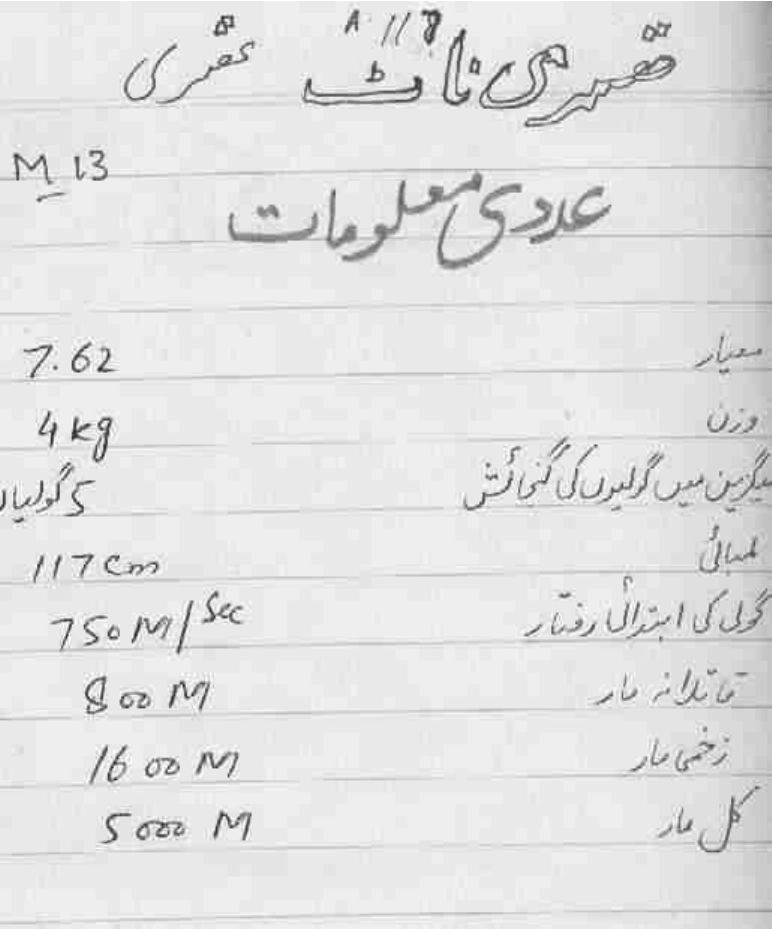 A 118
تھری ناٹ تھری
M 13
عددی معلومات
معیار 7.62
وزن 4 kg
میگزین میں گولیوں کی گنجائش 5 گولیاں
لمبائی 117 cm
گولی کی ابتدائی رفتار 750 M/Sec
قاتلانہ مار 800 M
زخمی مار 1600 M
کل مار 5000 M